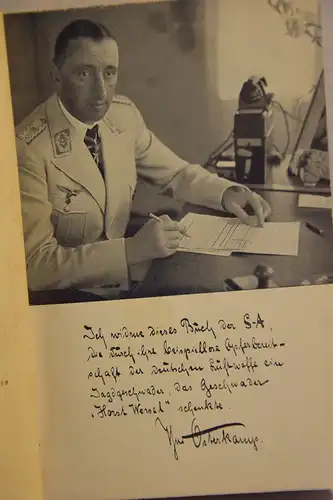 Ich widme dieses Buch der S-A,
die durch ihre beispiellose Opferbereit-
schaft der deutschen Luftwaffe ein
Jagdgeschwader, das Geschwader
"Horst Wessel" schenkte.
Osterkamp.